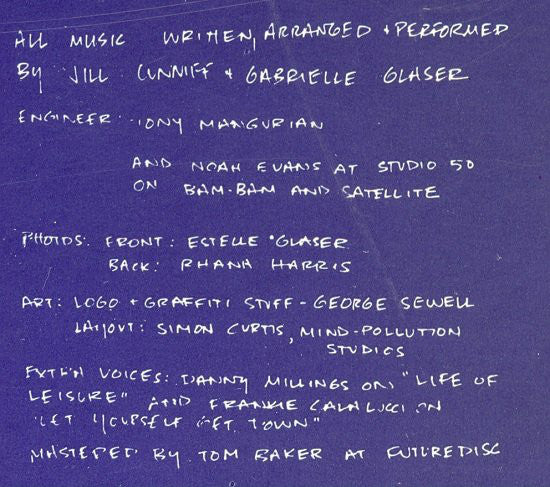 ALL MUSIC WRITTEN, ARRANGED + PERFORMED
BY JILL CUNNIFF + GABRIELLE GLASER
ENGINEER: TONY MANGURIAN
AND NOAH EVANS AT STUDIO 50
ON BAM-BAM AND SATELLITE
PHOTOS: FRONT: ESTELLE GLASER
BACK: RHANA HARRIS
ART: LOGO + GRAFFITI STUFF - GEORGE SEWELL
LAYOUT: SIMON CURTIS, MIND-POLLUTION
STUDIOS
VOICES: DANNY MILLINGS ON "LIFE OF
LEISURE" AND FRANKIE ON
"LET YOURSELF GET DOWN"
MASTERED BY TOM BAKER AT FUTUREDISC